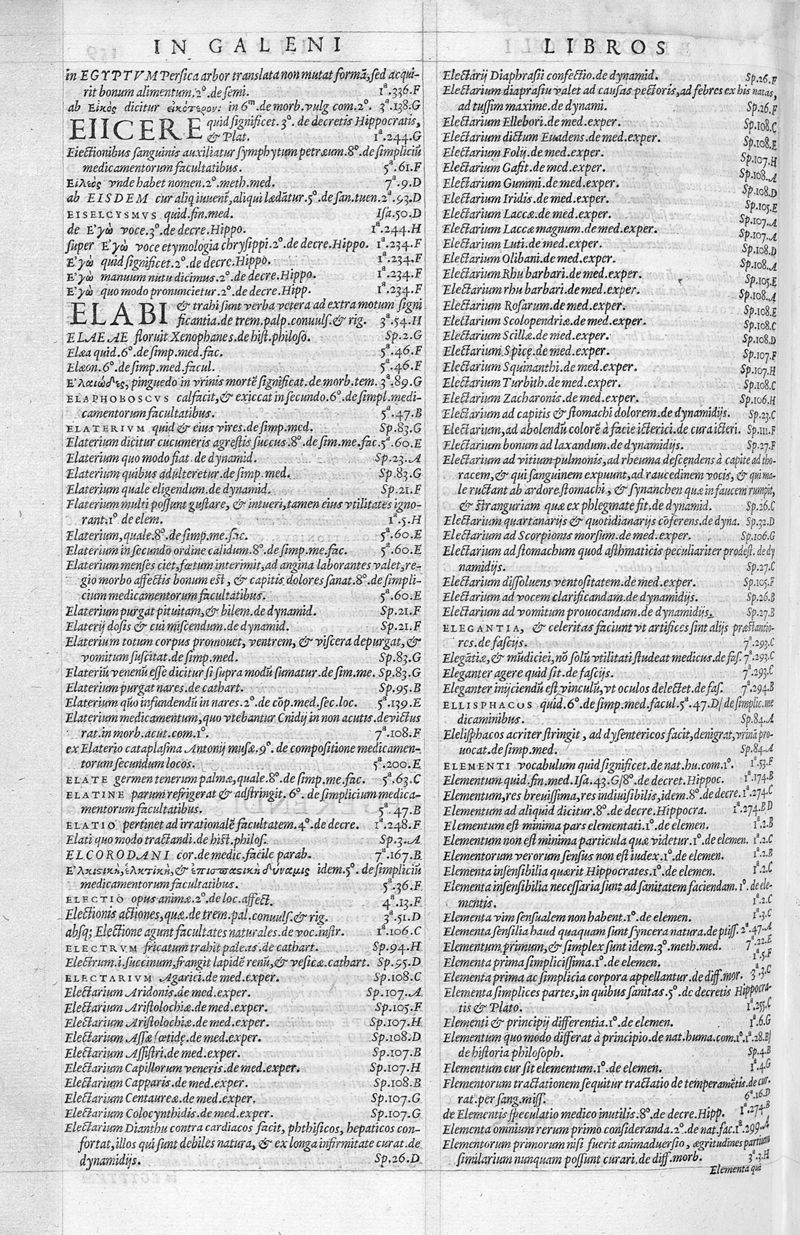 IN GALENI
in EGYPTVM Persica arbor translata non mutat formā, sed acqui-
rit bonum alimentum. 2°. de semi. 1ª.336.F
ab Εικὸς dicitur εἰκότερον: in 6ᵐ. de morb. vulg com. 2°. 3ª.138.G
EIICERE quid significet. 3°. de decretis Hippocratis,
& Plat. 1ª.244.G
Eiectionibus sanguinis auxiliatur symphytum petræum. 8°. de simpliciū
medicamentorum facultatibus. 5ª.61.F
Εἰλεὸς vnde habet nomen. 2°. meth. med. 7ª.9.D
ab EISDEM cur aliq iuuent, aliqui lædātur. 5°. de san. tuen. 2ª.93.D
EISELCYSMVS quid. fin. med. Isa.50.D
de Ε'γὼ voce. 3°. de decre. Hippo. 1ª.244.H
super Ε'γὼ voce etymologia chrysippi. 2°. de decre. Hippo. 1ª.234.F
Ε'γὼ quid significet. 2°. de decre. Hippo. 1ª.234.F
Ε'γὼ manuum nutu dicimus. 2°. de decre. Hippo. 1ª.234.F
Ε'γὼ quo modo pronuncietur. 2°. de decre. Hipp. 1ª.234.F
ELABI & trahi sunt verba vetera ad extra motum signi
ficantia. de trem. palp. conuuls. & rig. 3ª.54.H
ELAEAE floruit Xenophanes. de hist. philoso. Sp.2.G
Elæa quid. 6°. de simp. med. fac. 5ª.46.F
Elæon. 6°. de simp. med. facul. 5ª.46.F
Ε'λαιώδης, pinguedo in vrinis mortē significat. de morb. tem. 3ª.89.G
ELAPHOBOSCVS calfacit, & exiccat in secundo. 6°. de simpl. medi-
camentorum facultatibus. 5ª.47.B
ELATERIVM quid & eius vires. de simp. med. Sp.83.G
Elaterium dicitur cucumeris agrestis succus. 8°. de sim. me. fac. 5ª.60.E
Elaterium quo modo fiat. de dynamid. Sp.23.A
Elaterium quibus adulteretur. de simp. med. Sp.83.G
Elaterium quale eligendum. de dynamid. Sp.21.F
Elaterium multi possunt gustare, & intueri, tamen eius vtilitates igno-
rant. 1°. de elem. 1ª.5.H
Elaterium, quale. 8°. de simp. me. fac. 5ª.60.E
Elaterium in secundo ordine calidum. 8°. de simp. me. fac. 5ª.60.E
Elaterium menses ciet, fœtum interimit, ad angina laborantes valet, re-
gio morbo affectis bonum est, & capitis dolores sanat. 8°. de simpli-
cium medicamentorum facultatibus. 5ª.60.E
Elaterium purgat pituitam, & bilem. de dynamid. Sp.21.F
Elaterij dosis & cui miscendum. de dynamid. Sp.21.F
Elaterium totum corpus promouet, ventrem, & viscera depurgat, &
vomitum suscitat. de simp. med. Sp.83.G
Elateriū venenū esse dicitur si supra modū sumatur. de sim. me. Sp.83.G
Elaterium purgat nares. de cathart. Sp.95.B
Elaterium quo infundendū in nares. 2°. de cōp. med. sec. loc. 5ª.139.E
Elaterium medicamentum, quo vtebantur Cnidij in non acutis. de victus
rat. in morb. acut. com. 1°. 7ª.108.F
ex Elaterio cataplasma Antonij musæ. 9°. de compositione medicamen-
torum secundum locos. 5ª.200.E
ELATE germen tenerum palmæ, quale. 8°. de simp. me. fac. 5ª.63.C
ELATINE parum refrigerat & adstringit. 6°. de simplicium medica-
mentorum facultatibus. 5ª.47.B
ELATIO pertinet ad irrationalē facultatem. 4°. de decre. 1ª.248.F
Elati quo modo tractandi. de hist. philos. Sp.3.A
ELCORODANI cor. de medic. facile parab. 7ª.167.B
Ε'λκτικὴ, ἑλκτικὴ, & ἐπισπασικὴ δύναμις idem. 5°. de simpliciū
medicamentorum facultatibus. 5ª.36.F
ELECTIO opus animæ. 2°. de loc. affect. 4ª.13.F
Electionis actiones, quæ. de trem. pal. conuuls. & rig. 3ª.51.D
absq; Electione agunt facultates naturales. de voc. instr. 1ª.106.C
ELECTRVM fricatum trahit paleas. de cathart. Sp.94.H
Electrum. i. succinum, frangit lapidē renū, & vesicæ. cathart. Sp.95.D
ELECTARIVM Agarici. de med. exper. Sp.108.C
Electarium Aridonis. de med. exper. Sp.107.A
Electarium Aristolochiæ. de med. exper. Sp.105.F
Electarium Aristolochiæ. de med. exper. Sp.107.H
Electarium Assæ fœtidę. de med. exper. Sp.108.D
Electarium Assistri. de med. exper. Sp.107.B
Electarium Capillorum veneris. de med. exper. Sp.107.H
Electarium Capparis. de med. exper. Sp.108.B
Electarium Centaureæ. de med. exper. Sp.107.G
Electarium Colocynthidis. de med. exper. Sp.107.G
Electarium Dianthu contra cardiacos facit, phthisicos, hepaticos con-
fortat, illos qui sunt debiles natura, & ex longa infirmitate curat. de
dynamidijs. Sp.26.D
LIBROS
Electarij Diaphrasii confectio. de dynamid. Sp.26.F
Electarium diaprasiu valet ad causas pectoris, ad febres ex his natas,
ad tussim maxime. de dynami. Sp.26.F
Electarium Ellebori. de med. exper. Sp.108.C
Electarium dictum Euadens. de med. exper. Sp.108.E
Electarium Folij. de med. exper. Sp.107.H
Electarium Gafit. de med. exper. Sp.108.A
Electarium Gummi. de med. exper. Sp.108.D
Electarium Iridis. de med. exper. Sp.105.E
Electarium Laccæ. de med. exper. Sp.107.A
Electarium Laccæ magnum. de med. exper. Sp.107.A
Electarium Luti. de med. exper. Sp.108.D
Electarium Olibani. de med. exper. Sp.108.A
Electarium Rhu barbari. de med. exper. Sp.105.E
Electarium rhu barbari. de med. exper. Sp.108.A
Electarium Rosarum. de med. exper. Sp.108.E
Electarium Scolopendriæ. de med. exper. Sp.108.C
Electarium Scillæ. de med. exper. Sp.108.D
Electarium Spicę. de med. exper. Sp.107.F
Electarium Squinanthi. de med. exper. Sp.107.H
Electarium Turbith. de med. exper. Sp.108.C
Electarium Zacharonis. de med. exper. Sp.106.H
Electarium ad capitis & stomachi dolorem. de dynamidijs. Sp.23.C
Electarium, ad abolendū colorē à facie icterici. de cura icteri. Sp.111.F
Electarium bonum ad laxandum. de dynamidijs. Sp.27.F
Electarium ad vitium pulmonis, ad rheuma descendens à capite ad tho-
racem, & qui sanguinem expuunt, ad raucedinem vocis, & qui ma-
le ructant ab ardore stomachi, & synanchen quæ in faucem rumpit,
& stranguriam quæ ex phlegmate fit. de dynamid. Sp.26.C
Electarium quartanarijs & quotidianarijs cōferens. de dyna. Sp.32.D
Electarium ad Scorpionis morsum. de med. exper. Sp.106.G
Electarium ad stomachum quod asthmaticis peculiariter prodest. de dy
namidijs. Sp.27.C
Electarium dissoluens ventositatem. de med. exper. Sp.105.F
Electarium ad vocem clarificandam. de dynamidijs. Sp.26.B
Electarium ad vomitum prouocandum. de dynamidijs. Sp.27.B
ELEGANTIA, & celeritas faciunt vt artifices sint alijs præstantio-
res. de fascijs. 7ª.293.C
Elegātiæ, & mūdiciei, nō solū vtilitati studeat medicus. de fas. 7ª.293.C
Eleganter agere quid sit. de fascijs. 7ª.293.C
Eleganter inijciendū est vinculū, vt oculos delectet. de fas. 7ª.294.B
ELLISPHACOS quid. 6°. de simp. med. facul. 5ª.47.D/ de simplic. me
dicaminibus. Sp.84.A
Elelisphacos acriter stringit, ad dysentericos facit, denigrat, vrinā pro-
uocat. de simp. med. Sp.84.A
ELEMENTI vocabulum quid significet. de nat. hu. com. 1°. 1ª.53.F
Elementum quid. fin. med. Isa.43.G/ 8°. de decret. Hippoc. 1ª.174.B
Elementum, res breuissima, res indiuisibilis, idem. 8°. de decre. 1ª.274.C
Elementum ad aliquid dicitur. 8°. de decre. Hippocra. 1ª.274.BD
Elementum est minima pars elementati. 1°. de elemen. 1ª.2.B
Elementum non est minima particula quæ videtur. 1°. de elemen. 1ª.2.C
Elementorum verorum sensus non est iudex. 1°. de elemen. 1ª.2.B
Elementa insensibilia quærit Hippocrates. 1°. de elemen. 1ª.2.C
Elementa insensibilia necessaria sunt ad sanitatem faciendam. 1°. de ele-
men. 1ª.2.C
Elementa vim sensualem non habent. 1°. de elemen. 1ª.3.C
Elementa sensilia haud quaquam sunt syncera natura. de ptiss. 2ª.47.A
Elementum primum, & simplex sunt idem. 3°. meth. med. 7ª.22.E
Elementa prima simplicissima. 1°. de elemen. 1ª.5.F
Elementa prima ac simplicia corpora appellantur. de diff. mor. 3ª.3.C
Elementa simplices partes, in quibus sanitas. 5°. de decretis Hippocra-
tis & Plato. 1ª.255.C
Elementi & principij differentia. 1°. de elemen. 1ª.6.G
Elementum quo modo differat à principio. de nat. huma. com. 1°. 1ª.28.B/
de historia philosoph. Sp.4.B
Elementum cur sit elementum. 1°. de elemen. 1ª.4.G
Elementorum tractationem sequitur tractatio de temperamētis. de cur.
rat. per sang. miss. 6ª.16.D
de Elementis speculatio medico inutilis. 8°. de decre. Hipp. 1ª.274.B
Elementa omnium rerum primo consideranda. 2°. de nat. fac. 1ª.299.A
Elementorum primorum nisi fuerit animaduersio, ægritudines partium
similarium nunquam possunt curari. de diff. morb. 3ª.3.H
Elementa qui